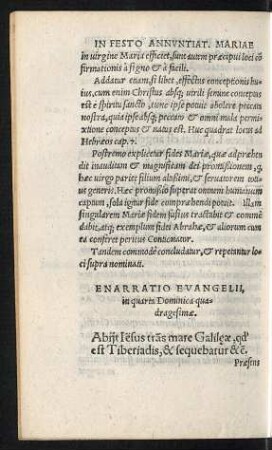 IN FESTO ANNVNTIAT. MARIAE
in virgine Maria efficiet, sunt autem præcipui loci cō
firmationis à signo & à facili.
Addatur etiam, si libet, effectus conceptionis hu
ius, cum enim Christus absq; virili semine conceptus
est è spiritu sancto, cunc ipse potuit abolere peccata
nostra, quia ipse absq; peccato & omni mala permi
xtione conceptus & natus est. Huc quadrat locus ad
Hebræos cap. 7.
Postremo explicetur fides Mariæ, quæ apprehen
dit inauditam & magnificam dei promissionem, q;
hæc virgo pariet filium altissimi, & seruatorem to
tius generis. Hæc promissio suprat omnem humanum
captum, sola igitur fide comprehendi potuit. Illam
singularem Mariæ fidem fusius tractabit & commē
dabit, atq; exemplum fidei Abrahæ, & aliorum cum
ea conferet peritus Concionator.
Tandem commodè concludatur, & repetantur lo
ci supra nominati.
ENARRATIO EVANGELII,
in quarta Dominica qua-
dragesimæ.
Abijt Iesus trās mare Galilęæ, qd'
est Tiberiadis, & sequebatur &c̄.
Præsens